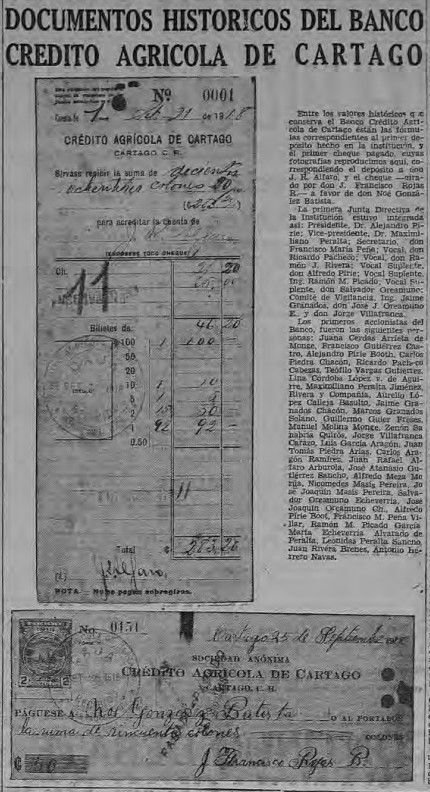 DOCUMENTOS HISTORICOS DEL BANCO
CREDITO AGRICOLA DE CARTAGO
Nº 0001
21 de 1918
CRÉDITO AGRÍCOLA DE CARTAGO
CARTAGO C. R.
Sírvase recibir la suma de
ochentitres colones 20
para acreditar la cuenta de
(ENDOSESE TODO CHEQUE)
Ch.
11
20
46 20
Billetes de:
₡ 100 1 100
50
20
10 1 10
5 1 5
2 15 30
1 92 92
0.50
Total ₡ 283 20
(f)
NOTA.—No se pagan sobregiros.
Entre los valores históricos que
conserva el Banco Crédito Agrí-
cola de Cartago están las fórmu-
las correspondientes al primer de-
pósito hecho en la institución, y
el primer cheque pagado, cuyas
fotografías reproducimos aquí, co-
rrespondiendo el depósito a don
J. R. Alfaro, y el cheque —tira-
do por don J. Francisco Rojas
R.— a favor de don Noé Gonzá-
lez Batista.
La primera Junta Directiva de
la Institución estuvo integrada
así: Presidente, Dr. Alejandro Pi-
rie; Vice-presidente, Dr. Maximi-
liano Peralta; Secretario, don
Francisco María Peña; Vocal, don
Ricardo Pacheco; Vocal, don Ra-
món J. Rivera; Vocal Suplente,
don Alfredo Pirie; Vocal Suplente,
Ing. Ramón M. Picado; Vocal Su-
plente, don Salvador Oreamuno;
Comité de Vigilancia, Ing. Jaime
Granados, don José J. Oreamuno
E. y don Jorge Villafranca.
Los primeros accionistas del
Banco, fueron las siguientes per-
sonas: Juana Cerdas Arrieta de
Monge, Francisco Gutiérrez Cas-
tro, Alejandro Pirie Booth, Carlos
Piedra Chacón, Ricardo Pacheco
Cabezas, Teófilo Vargas Gutiérrez,
Lina Córdoba López v. de Agui-
rre, Maximiliano Peralta Jiménez,
Rivera y Compañía, Aurelio Ló-
pez Calleja Basulto, Jaime Gra-
nados Chacón, Marcos Granados
Solano, Guillermo Guier Frises,
Manuel Molina Monge, Zenón Sa-
nabria Quirós, Jorge Villafranca
Carazo, Luis García Aragón, Juan
Tomás Piedra Arias, Carlos Ara-
gón Ramírez, Juan Rafael Al-
faro Arburola, José Atanasio Gu-
tiérrez Sancho, Alfredo Meza Me
nía, Nicomedes Masís Pereira, Jo
sé Joaquín Masís Pereira, Salva-
dor Oreamuno Echeverría, José
Joaquín Oreamuno Ch., Alfredo
Pirie Boot, Francisco M. Peña Vi-
llar, Ramón M. Picado García
Marta Echeverría Alvarado de
Peralta, Leonidas Peralta Sancho,
Juan Rivera Brenes, Antonio He-
rrero Navas.
No. 0151
Cartago 25 de Septiembre
SOCIEDAD ANÓNIMA
CRÉDITO AGRÍCOLA DE CARTAGO
CARTAGO, C. R.
PÁGUESE A Noé González Batista O AL PORTADOR
la suma de cincuenta colones COLONES
₡ 50
J. Francisco Rojas R.